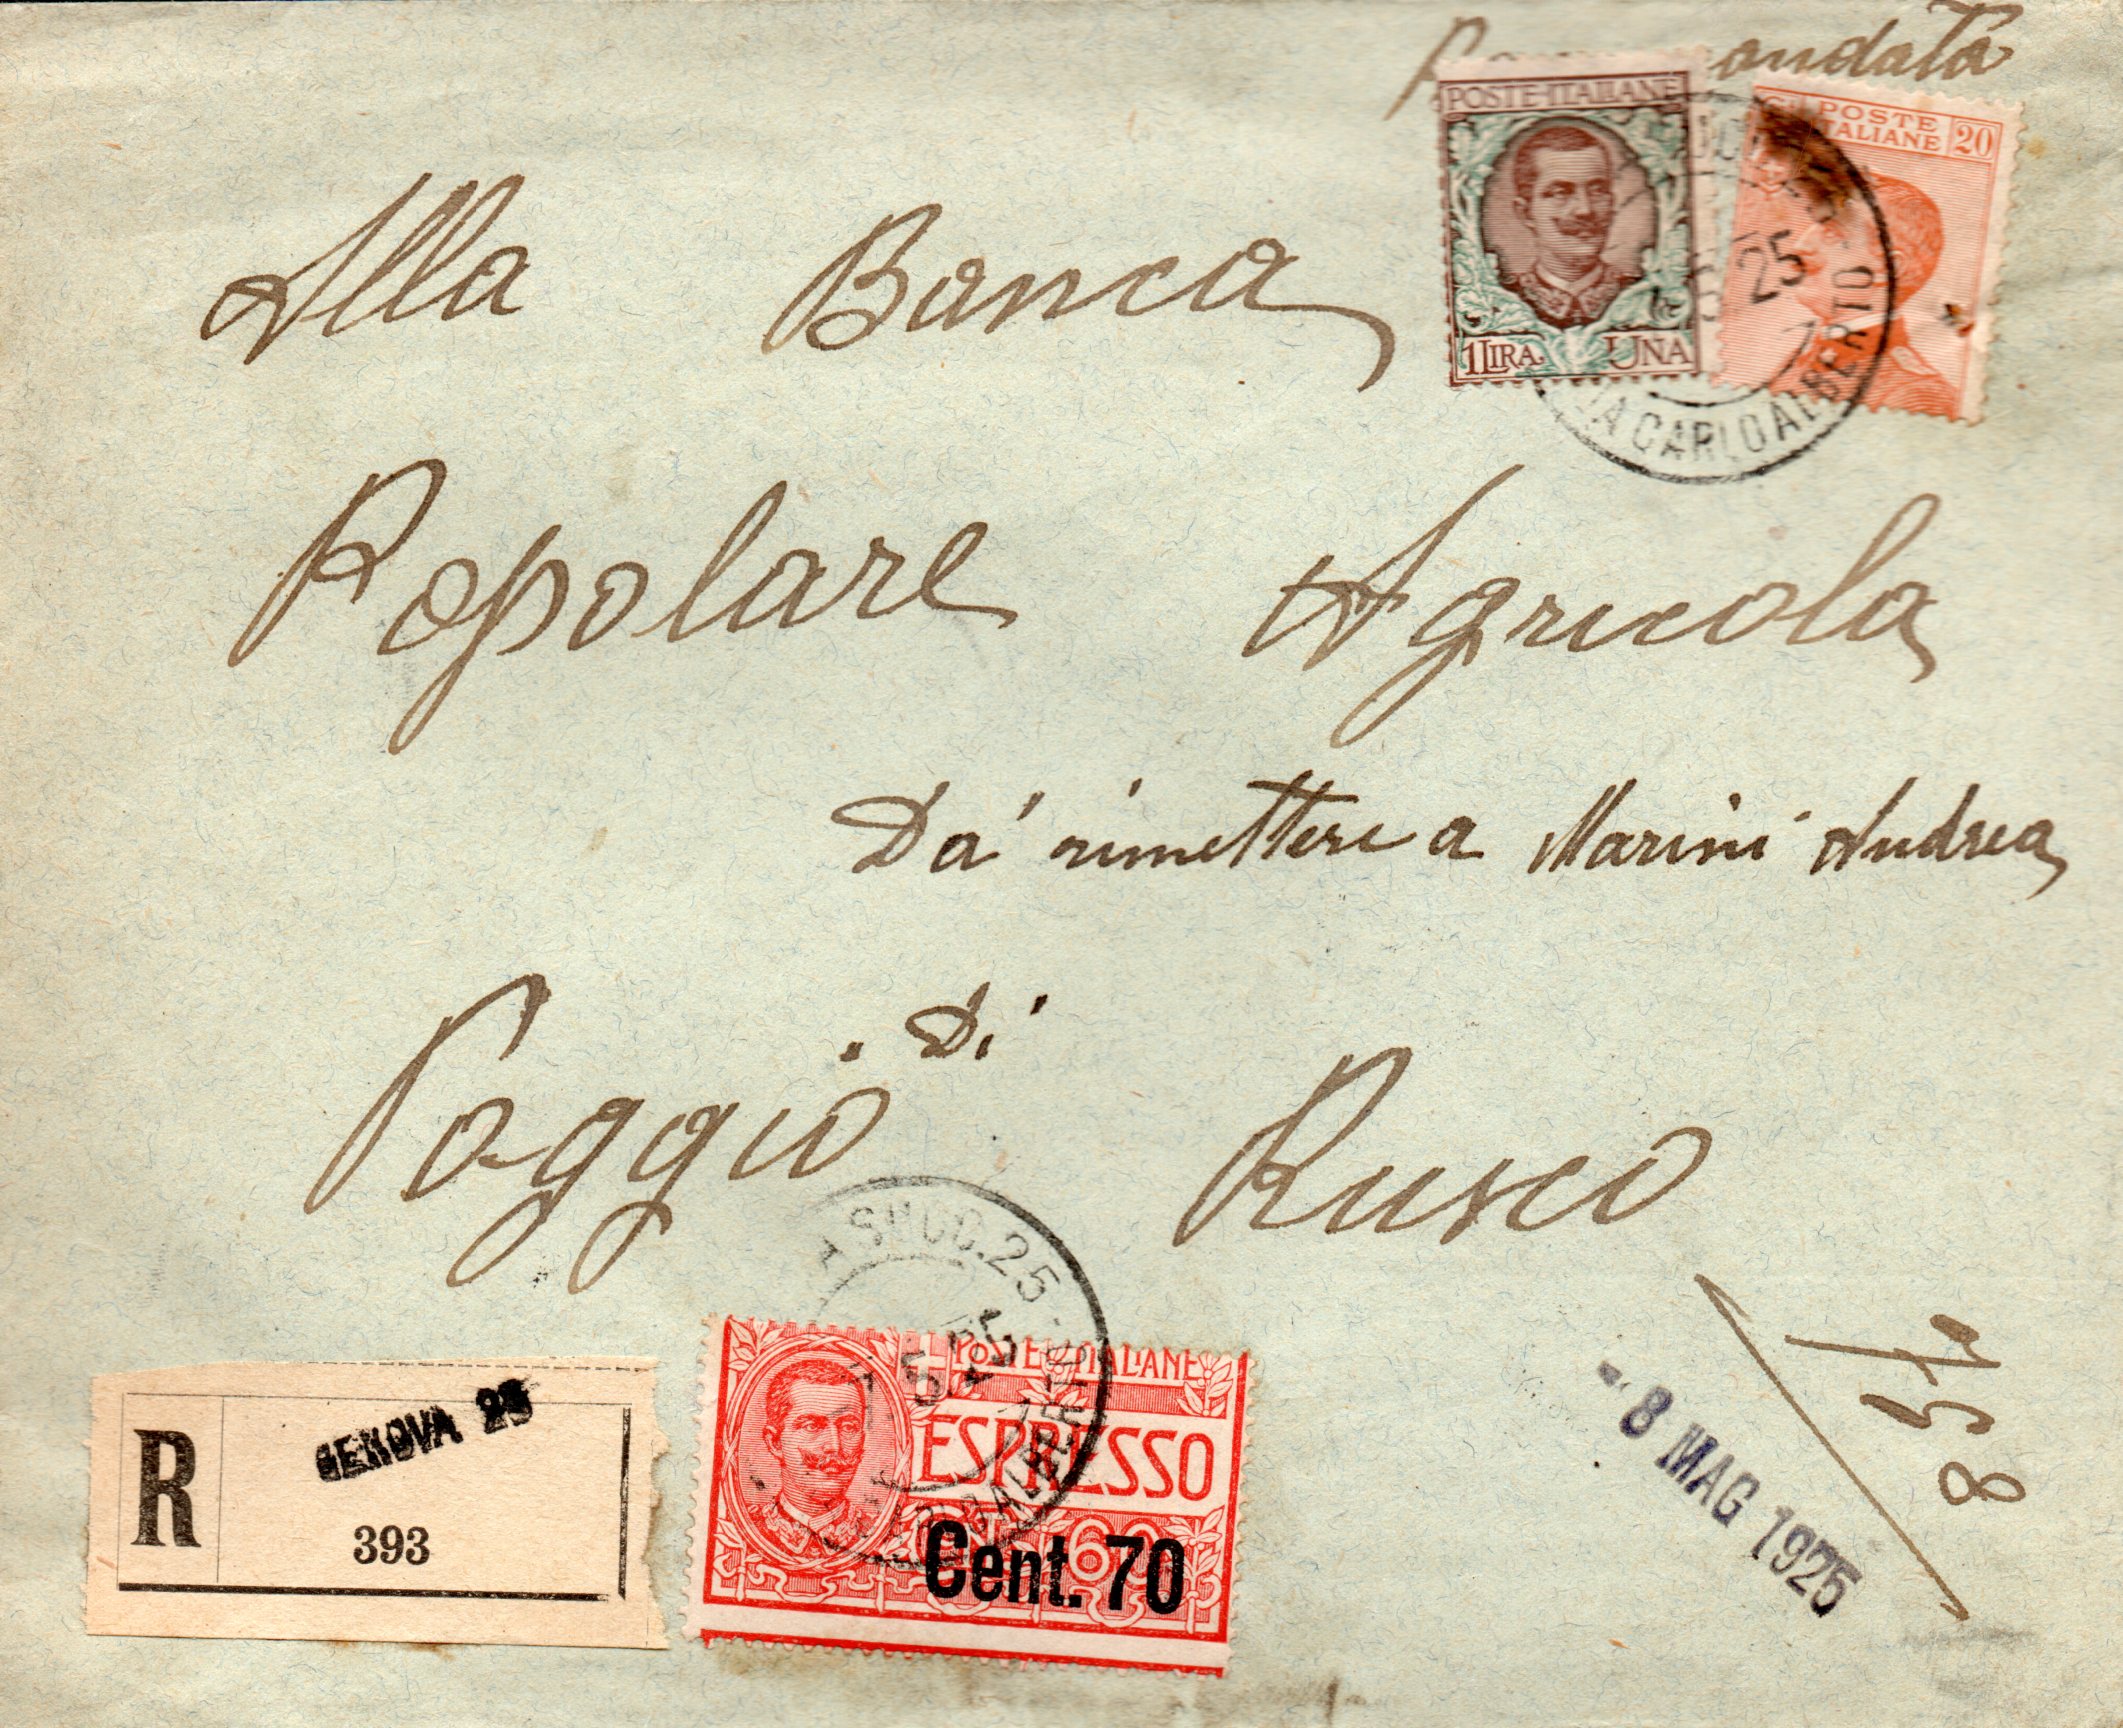 POSTE ITALIANE
1 LIRA. UNA
POSTE
ITALIANE
20
25
VIA CARLO ALBERTO
Alla Banca
Popolare Agricola
Da' rimettere a Marini Andrea
Poggio Di Rusco
SUCC. 25
5 25
CARLO ALBERTO
R
GENOVA 25
393
POSTE ITALIANE
ESPRESSO
60
Cent. 70
- 8 MAG 1925